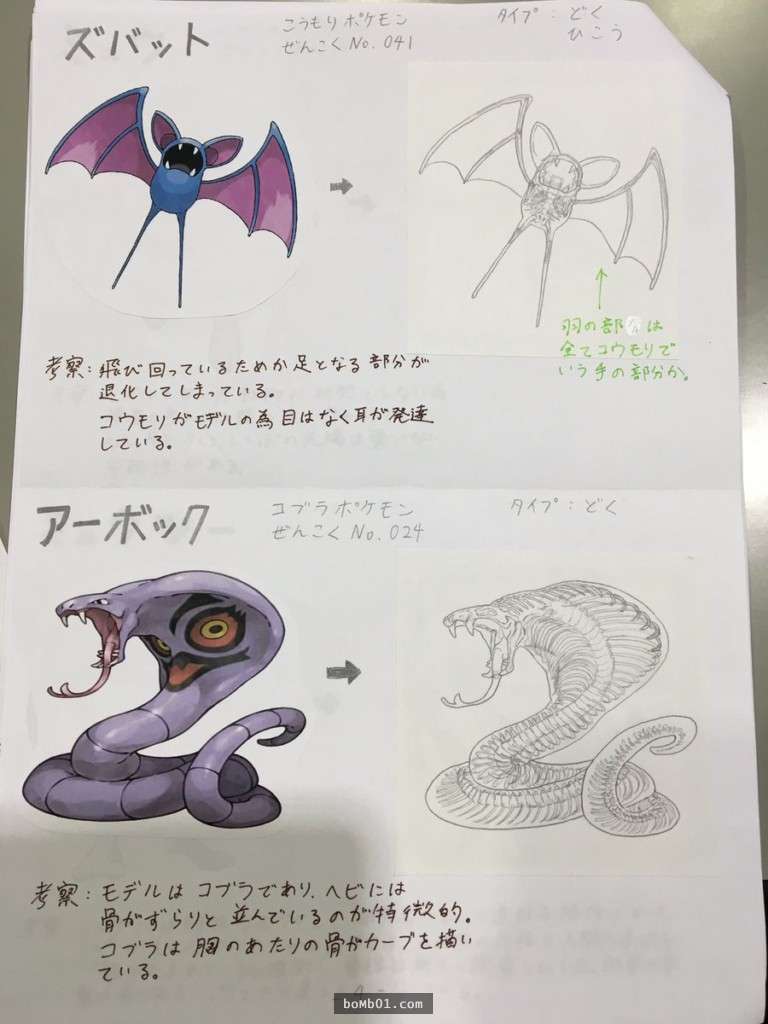 ズバット
こうもりポケモン
ぜんこくNo.041
タイプ：どく
ひこう
羽の部分は
全てコウモリで
いう手の部分か。
考察：飛び回っているためか足となる部分が
退化してしまっている。
コウモリがモデルの為目はなく耳が発達
している。
アーボック
コブラポケモン
ぜんこくNo.024
タイプ：どく
考察：モデルはコブラであり、ヘビには
骨がずらりと並んでいるのが特徴的。
コブラは胸のあたりの骨がカーブを描い
ている。
boMb01.com